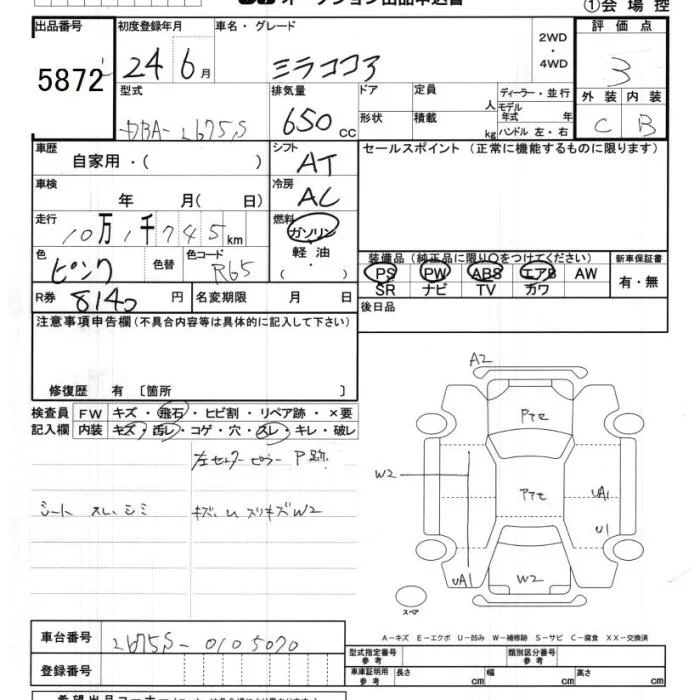 オークション出品申込書
①会場控
出品番号
5872
初度登録年月
24 6月
車名・グレード
ミラココア
2WD
・
4WD
評価点
3
外装 内装
C B
型式
DBA-L675S
排気量
650 cc
ドア
形状
定員
人
積載
kg
ディーラー・並行
モデル年式 年
ハンドル 左・右
車歴
自家用・( )
シフト
AT
セールスポイント(正常に機能するものに限ります)
車検
年 月( 日)
冷房
AC
走行
10万1千745km
燃料
ガソリン
軽油
・( )・
色
ピンク
色替
色コード
R65
装備品(純正品に限り○をつけてください)
PS PW ABS エアB AW
SR ナビ TV カワ
新車保証書
有・無
R券
8140円
名変期限 月 日
後日品
注意事項申告欄(不具合内容等は具体的に記入して下さい)
修復歴 有 〔箇所 〕
検査員記入欄
FW キズ・飛石・ヒビ割・リペア跡・×要
内装 キズ・汚レ・コゲ・穴・スレ・キレ・破レ
左センターピラー P跡
シート スレ、シミ
キズ、U スリキズW2
A2
Pte
W2
Pte
UA1
U1
UA1
W2
スペア
A-キズ E-エクボ U-凹み W-補修跡 S-サビ C-腐食 XX-交換済
車台番号
L675S-0105070
登録番号
型式指定番号
参考
類別区分番号
参考
車庫証明用
参考
長さ cm
幅 cm
高さ cm